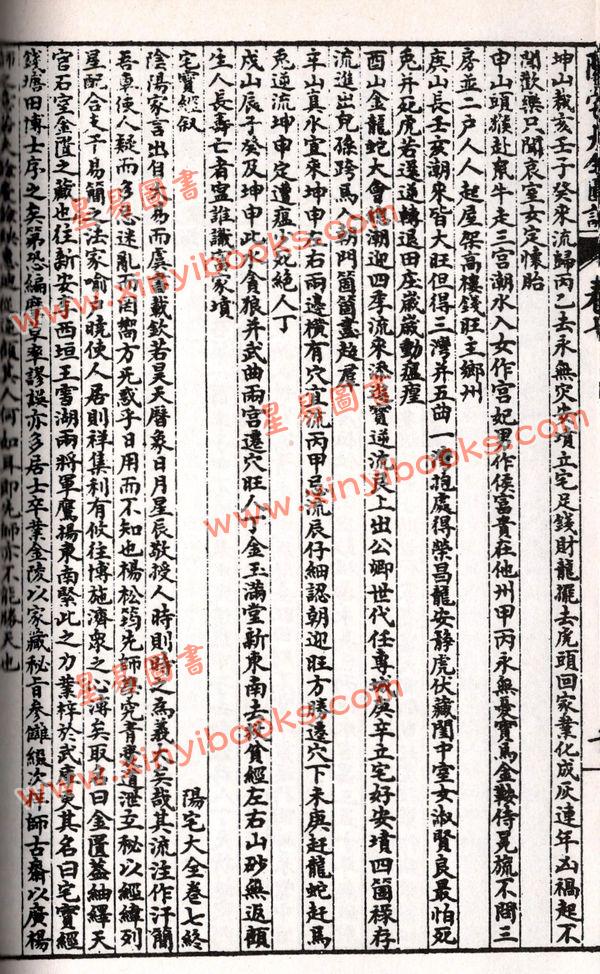 坤山裁亥壬子癸來流歸丙乙去永無災失項立宅足錢財龍擺去虎頭回家業化成灰連年凶禍起不
聞歡樂只聞哀室女定懷胎
申山頭猴赴鼠牛走三宮潮水入女作宮妃男作侯富貴在他州甲丙永無憂寶馬金鞍侍冕旒不問三
房並二户人人起屋架高樓錢旺主鄉州
庚山長壬亥潮來皆大旺但得三灣并五曲一抱處得榮昌龍安靜虎伏藏閨中室女淑賢良最怕死
兔并死虎若還逆轉退田庄歲歲動瘟瘟
酉山金龍蛇大會潮迎四季流來添進寶逆流艮上出公卿世代任專城庚辛立宅好安墳四箇祿存
流進出兒孫跨馬入朝門箇箇盡超居
辛山真水宜來坤申左右兩邊橫有穴直流丙甲忌流辰仔細認朝迎旺方勝邊穴下未庚赶龍蛇赶馬
兔逆流坤申定遭瘟少死絕人丁
戍山辰子癸及坤申此水貪狼并武曲兩宮還穴旺人丁金玉滿堂新東南去沒貧經左右山砂無返顧
生人長壽亡者寧誰識富家墳
陽宅大全卷七終
宅寶經叙
陰陽家言出自大易而虞書載欽若昊天曆象日月星辰敬授人時則時之為義大矣哉其流注作汗簡
吾車使人疑而多忌迷亂而罔嚮方死惑乎日用而不知也楊松筠先師學究青囊道泄玉秘以經緯列
星配合支干易簡之法家喻户曉使人居則祥集利有攸往博施濟眾之心溥矣取名曰金匱蓋紬繹天
宮石室金匱之藏也往新安李西垣王雪湖兩將軍鷹揚東南緊此之力業梓於武康更其名曰宅寶經
錢塘田博士序之矣第恐編摩草率謬誤亦多居士卒業金陵以家藏秘旨參讎綴次梓師古齋以廣楊
其人何如耳即先師亦不能勝天也
星易圖書
www.xinyibooks.com
星易圖書
www.xinyibooks.com
星易圖書
www.xinyibooks.com
星易圖書
www.xinyibooks.com